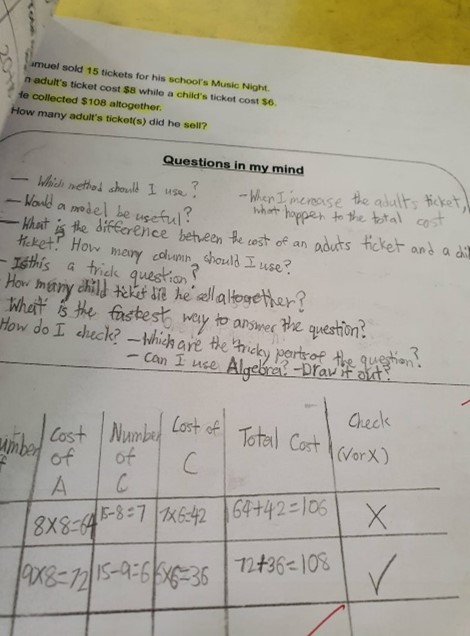 muel sold 15 tickets for his school's Music Night.
n adult's ticket cost $8 while a child's ticket cost $6.
He collected $108 altogether.
How many adult's ticket(s) did he sell?
Questions in my mind
- Which method should I use?
- When I increase the adults ticket, what happen to the total cost
- Would a model be useful?
- What is the difference between the cost of an aduts ticket and a chil
ticket? How many column should I use?
- Is this a trick question?
How many child ticket did he sell altogether?
What is the fastest way to answer the question?
How do I check? - Which are the tricky parts of the question?
- Can I use Algebra? - Draw it out?
umber Cost of A Number of C Cost of C Total Cost Check (√ or X)
8x8=64 15-8=7 7x6=42 64+42=106 X
9x8=72 15-9=6 6x6=36 72+36=108 √